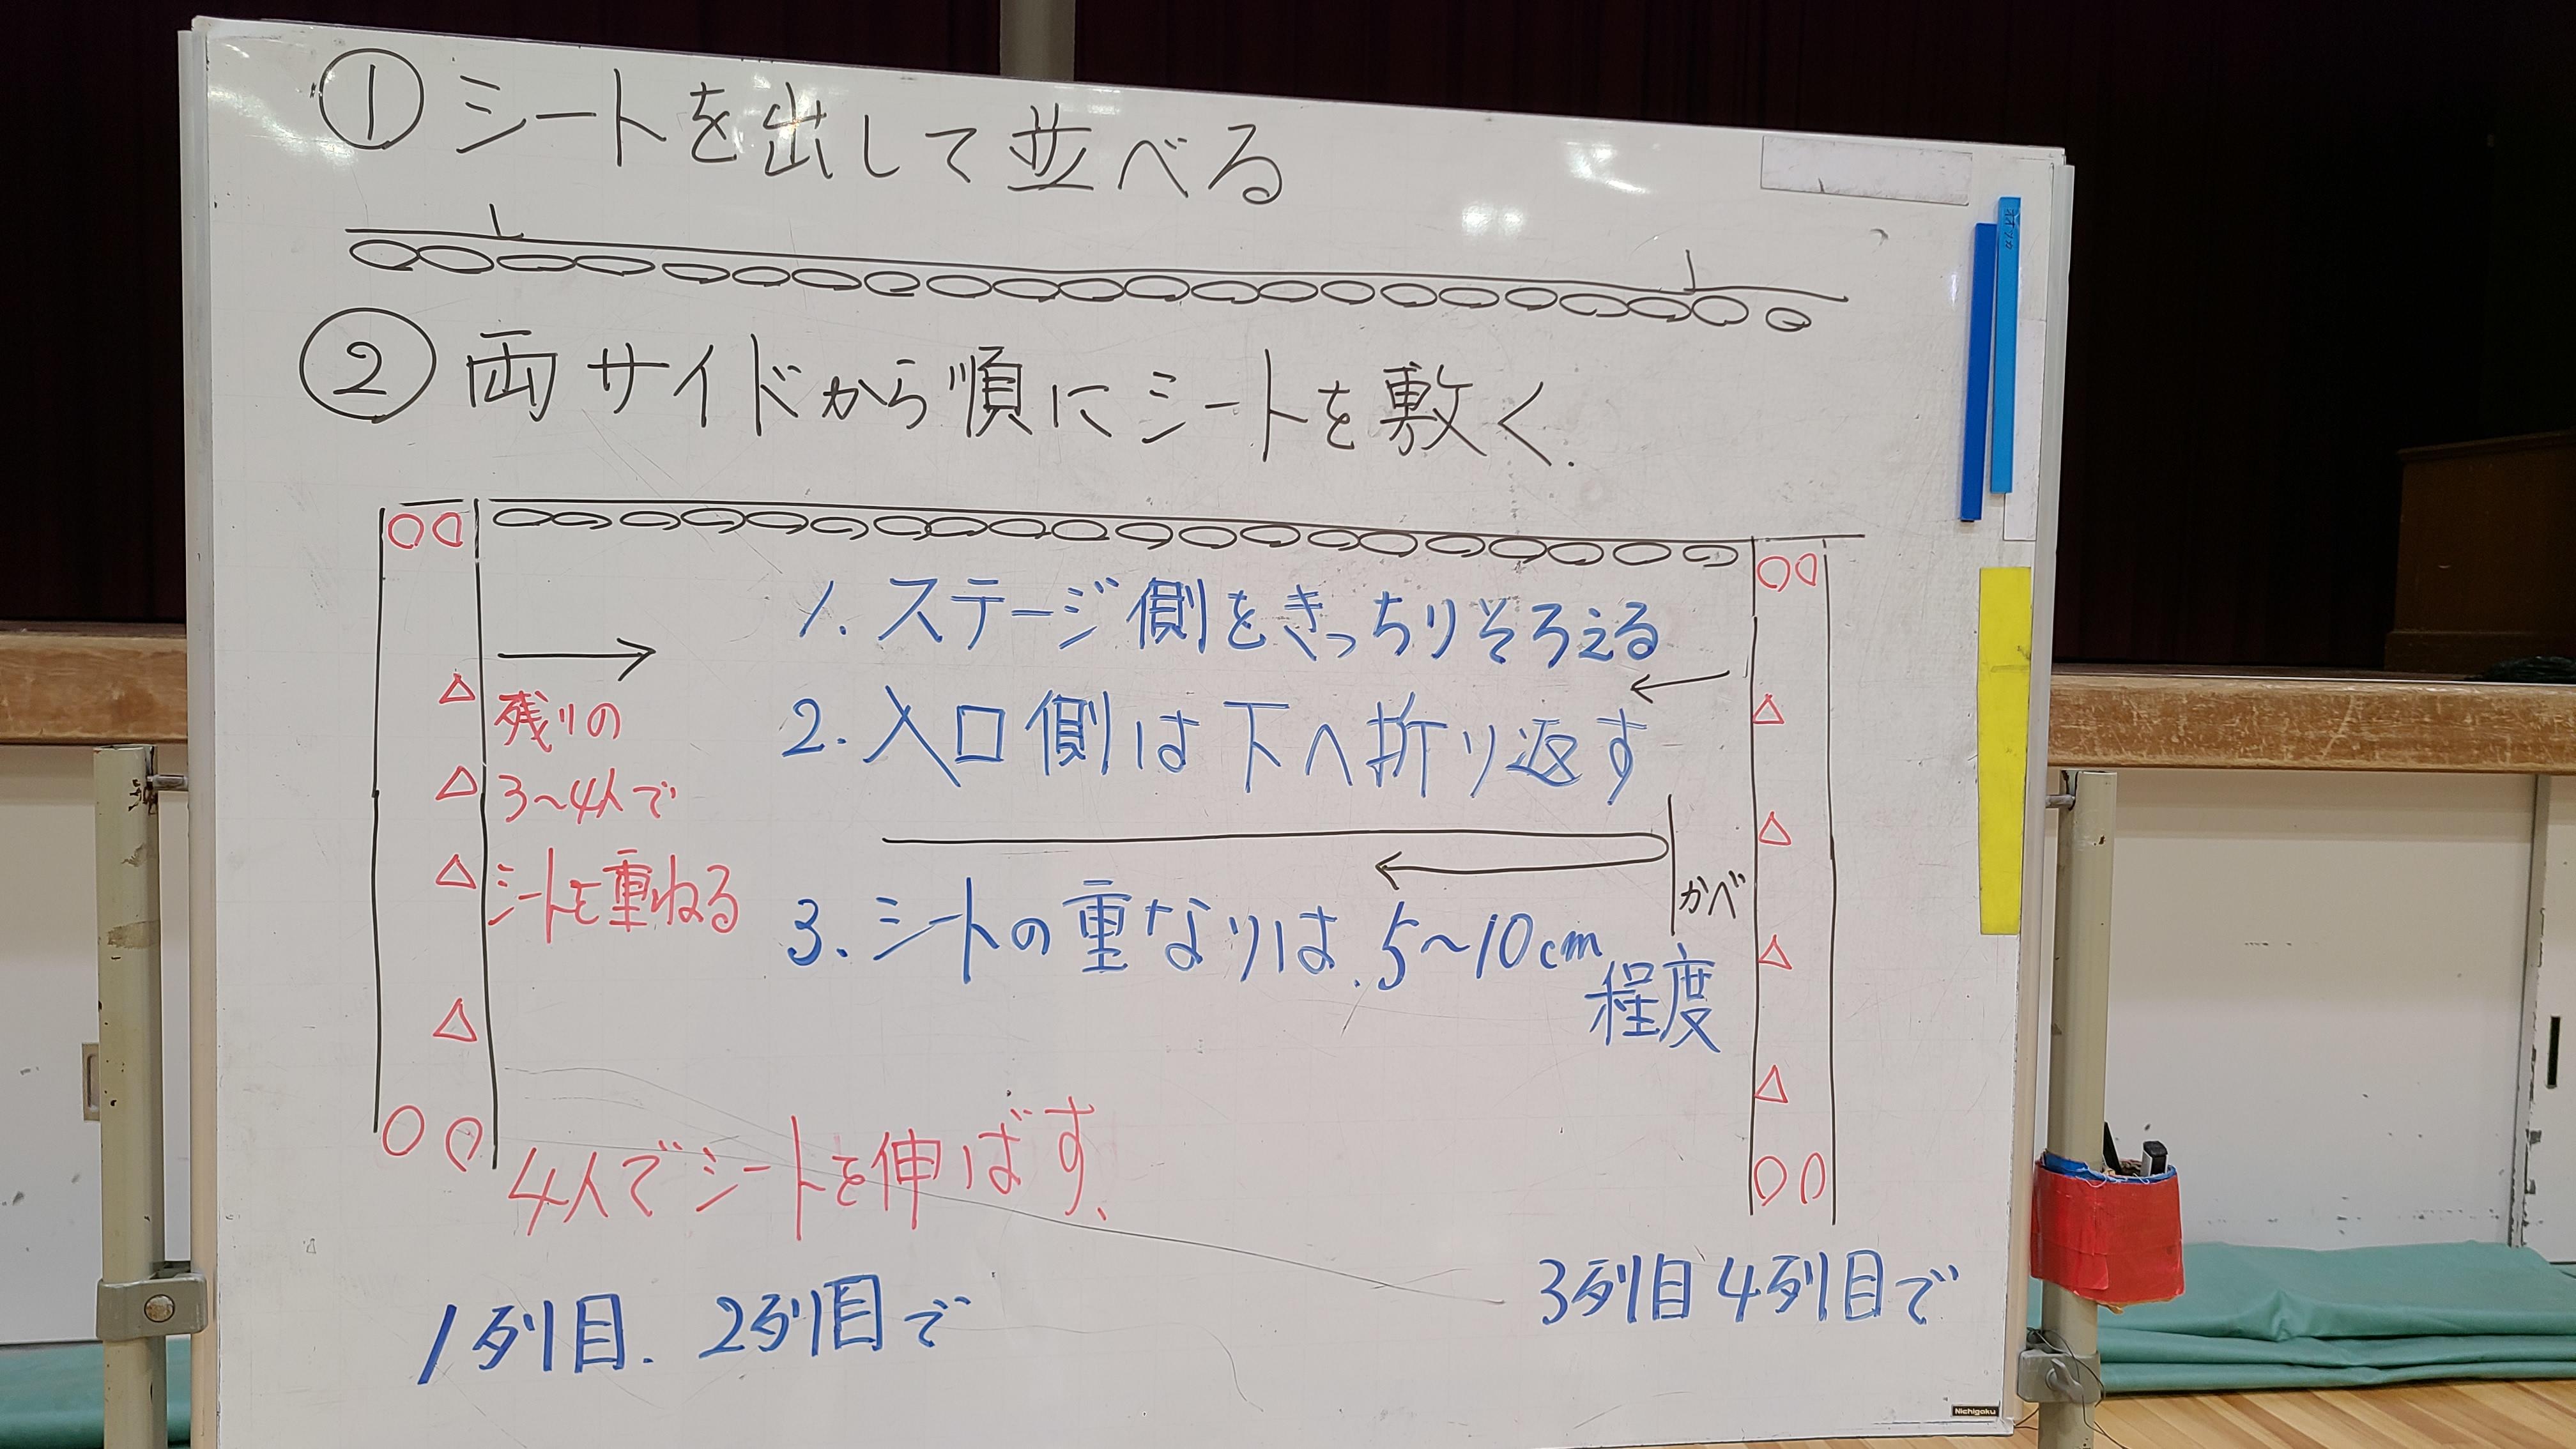 ① シートを出して並べる
② 両サイドから順に シートを敷く.
1. ステージ側をきっちりそろえる
2. 入口側は下へ折り返す
かべ
3. シートの重なりは、5〜10cm
程度
残りの
3〜4人で
シートを重ねる
4人でシートを伸ばす、
1列目. 2列目で
3列目 4列目で
Nichigaku